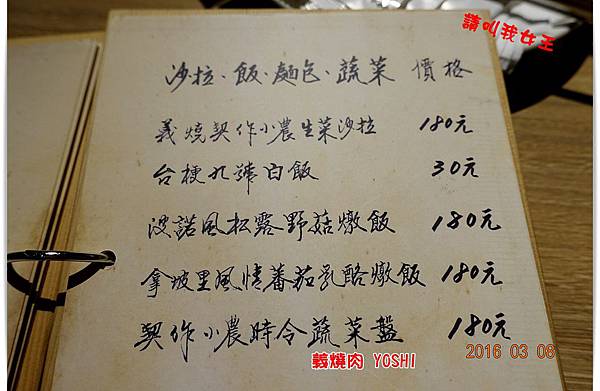 請叫我女王
沙拉、飯、麵包、蔬菜 價格
義燒契作小農生菜沙拉 180元
台梗九號白飯 30元
波諾風松露野菇燉飯 180元
拿坡里風情蕃茄乳酪燉飯 180元
契作小農時令蔬菜盤 180元
義燒肉 YOSHI
2016 03 06